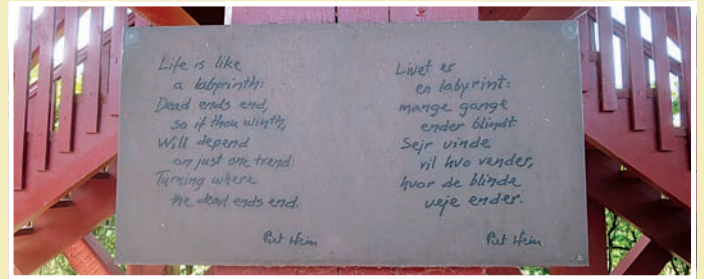 Life is like
a labyrinth:
Dead ends end,
so if thou winth,
Will depend
on just one trend:
Turning where
the dead ends end.
Piet Hein
Livet er
en labyrint:
mange gange
ender blindt.
Sejr vinde
vil hvo vender,
hvor de blinde
veje ender.
Piet Hein